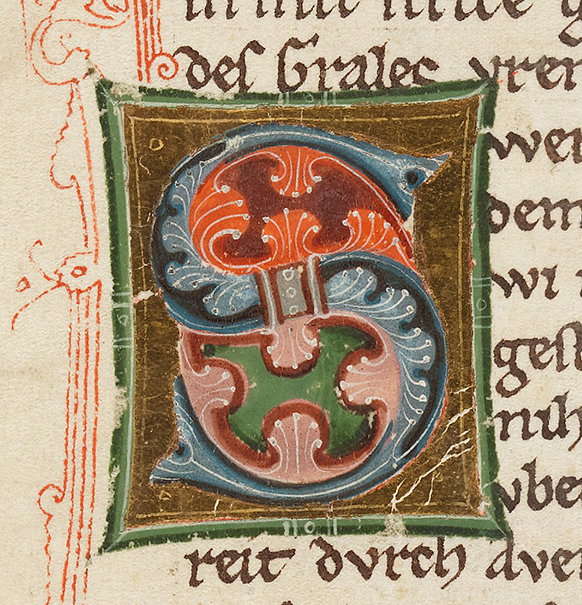 des Grales vren
S wer
dem
wi
gest
nih
vbe
reit dvrch aven